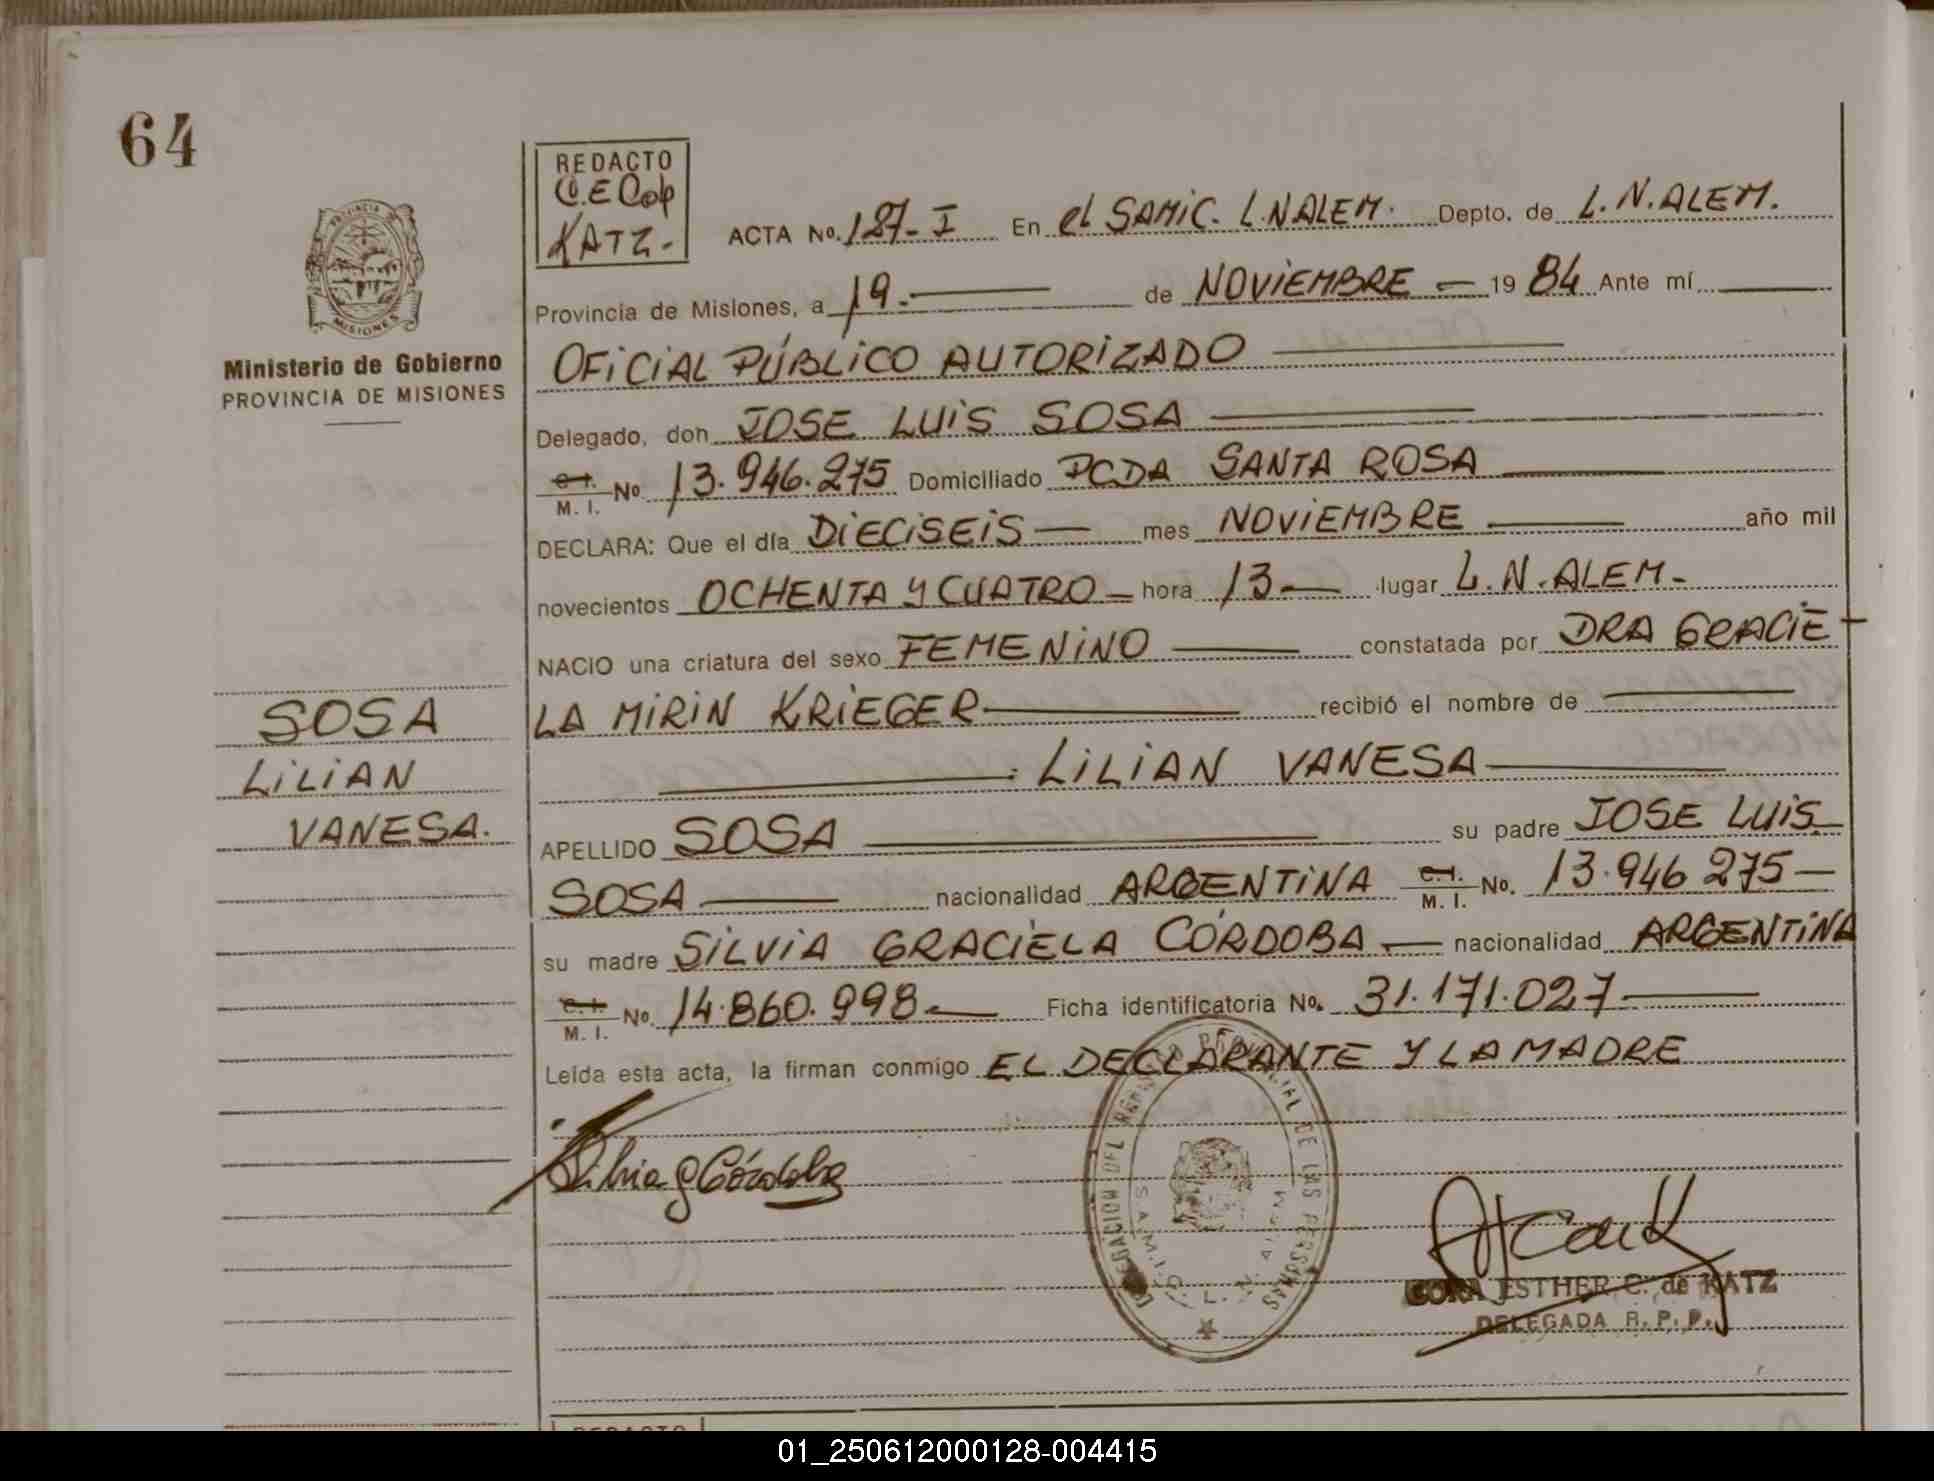 64
REDACTO
C.E Cop
KATZ-
ACTA No. 187-I En el SAMIC. L.N ALEM. Depto. de L.N.ALEM.
PROVINCIA DE
MISIONES
Ministerio de Gobierno
PROVINCIA DE MISIONES
Provincia de Misiones, a 19.— de NOVIEMBRE — 1984 Ante mí —
OFICIAL PÚBLICO AUTORIZADO —
Delegado, don JOSE LUIS SOSA —
C.I. M. I. No 13.946.275 Domiciliado PCDA SANTA ROSA —
DECLARA: Que el día DIECISEIS — mes NOVIEMBRE — año mil
novecientos OCHENTA Y CUATRO — hora 13 — lugar L.N.ALEM-
NACIO una criatura del sexo FEMENINO — constatada por DRA GRACIE-
LA MIRIN KRIEGER — recibió el nombre de —
— LILIAN VANESA —
APELLIDO SOSA — su padre JOSE LUIS
SOSA — nacionalidad ARGENTINA C.I. M. I. No. 13.946 275 —
su madre SILVIA GRACIELA CÓRDOBA — nacionalidad ARGENTINA
C.I. M. I. No. 14.860.998 — Ficha identificatoria No. 31.171.027 —
Leída esta acta, la firman conmigo EL DECLARANTE Y LA MADRE
SOSA
LILIAN
VANESA.
Silvia G Córdoba
DELEGACION DEL REGISTRO PROVINCIAL DE LAS PERSONAS
S.A.M.I.C. L. N. ALEM
CORA ESTHER C. de KATZ
DELEGADA R. P. P.
REDACTO
01_250612000128-004415